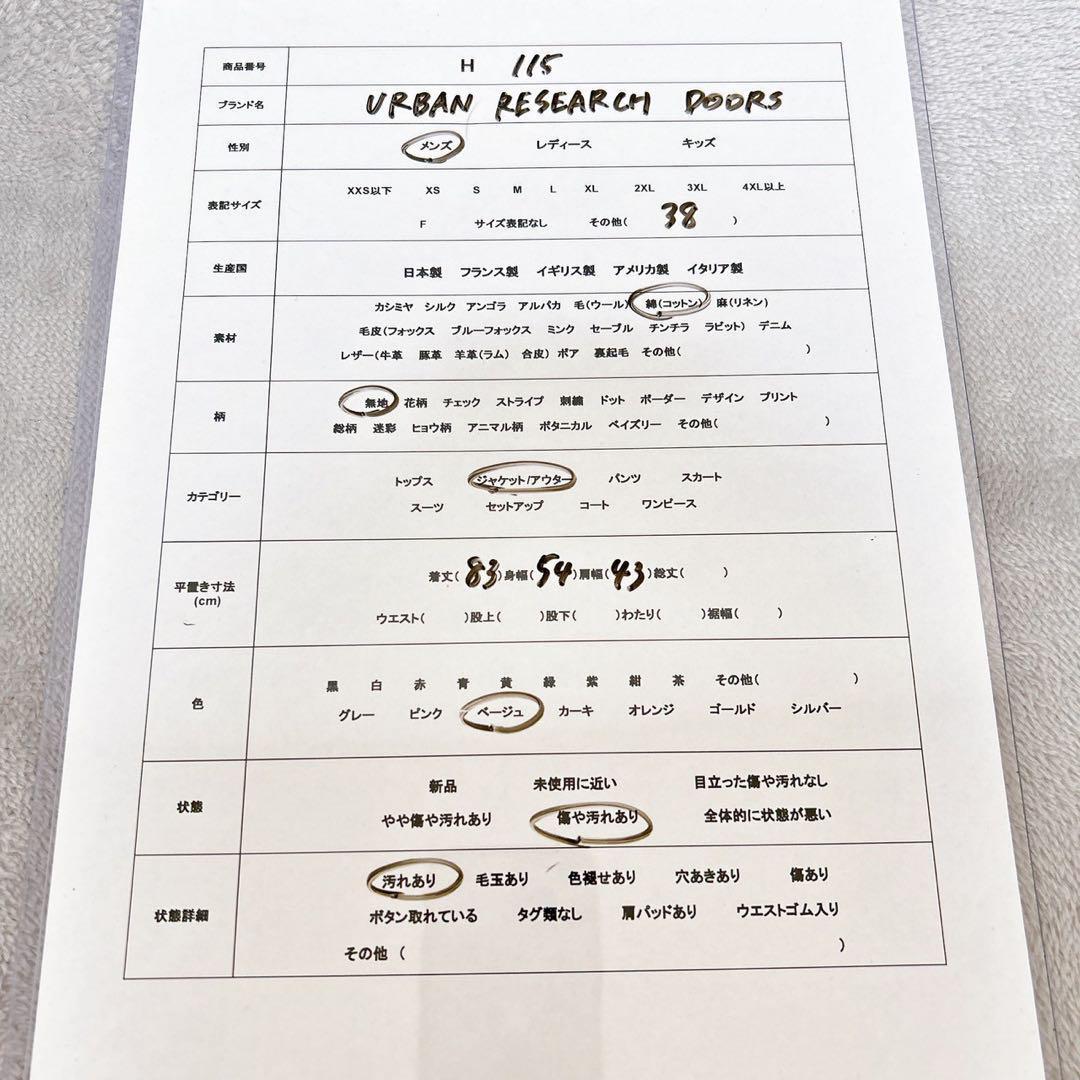 商品番号 H 115
ブランド名 URBAN RESEARCH DOORS
性別 メンズ レディース キッズ
表記サイズ
XXS以下 XS S M L XL 2XL 3XL 4XL以上
F サイズ表記なし その他( 38 )
生産国 日本製 フランス製 イギリス製 アメリカ製 イタリア製
素材
カシミヤ シルク アンゴラ アルパカ 毛(ウール) 綿(コットン) 麻(リネン)
毛皮(フォックス ブルーフォックス ミンク セーブル チンチラ ラビット) デニム
レザー(牛革 豚革 羊革(ラム) 合皮) ボア 裏起毛 その他( )
柄
無地 花柄 チェック ストライプ 刺繍 ドット ボーダー デザイン プリント
総柄 迷彩 ヒョウ柄 アニマル柄 ボタニカル ペイズリー その他( )
カテゴリー
トップス ジャケット/アウター パンツ スカート
スーツ セットアップ コート ワンピース
平置き寸法
(cm)
着丈( 83 )身幅( 54 )肩幅( 43 )総丈( )
ウエスト( )股上( )股下( )わたり( )裾幅( )
色
黒 白 赤 青 黄 緑 紫 紺 茶 その他( )
グレー ピンク ベージュ カーキ オレンジ ゴールド シルバー
状態
新品 未使用に近い 目立った傷や汚れなし
やや傷や汚れあり 傷や汚れあり 全体的に状態が悪い
状態詳細
汚れあり 毛玉あり 色褪せあり 穴あきあり 傷あり
ボタン取れている タグ類なし 肩パッドあり ウエストゴム入り
その他 ( )